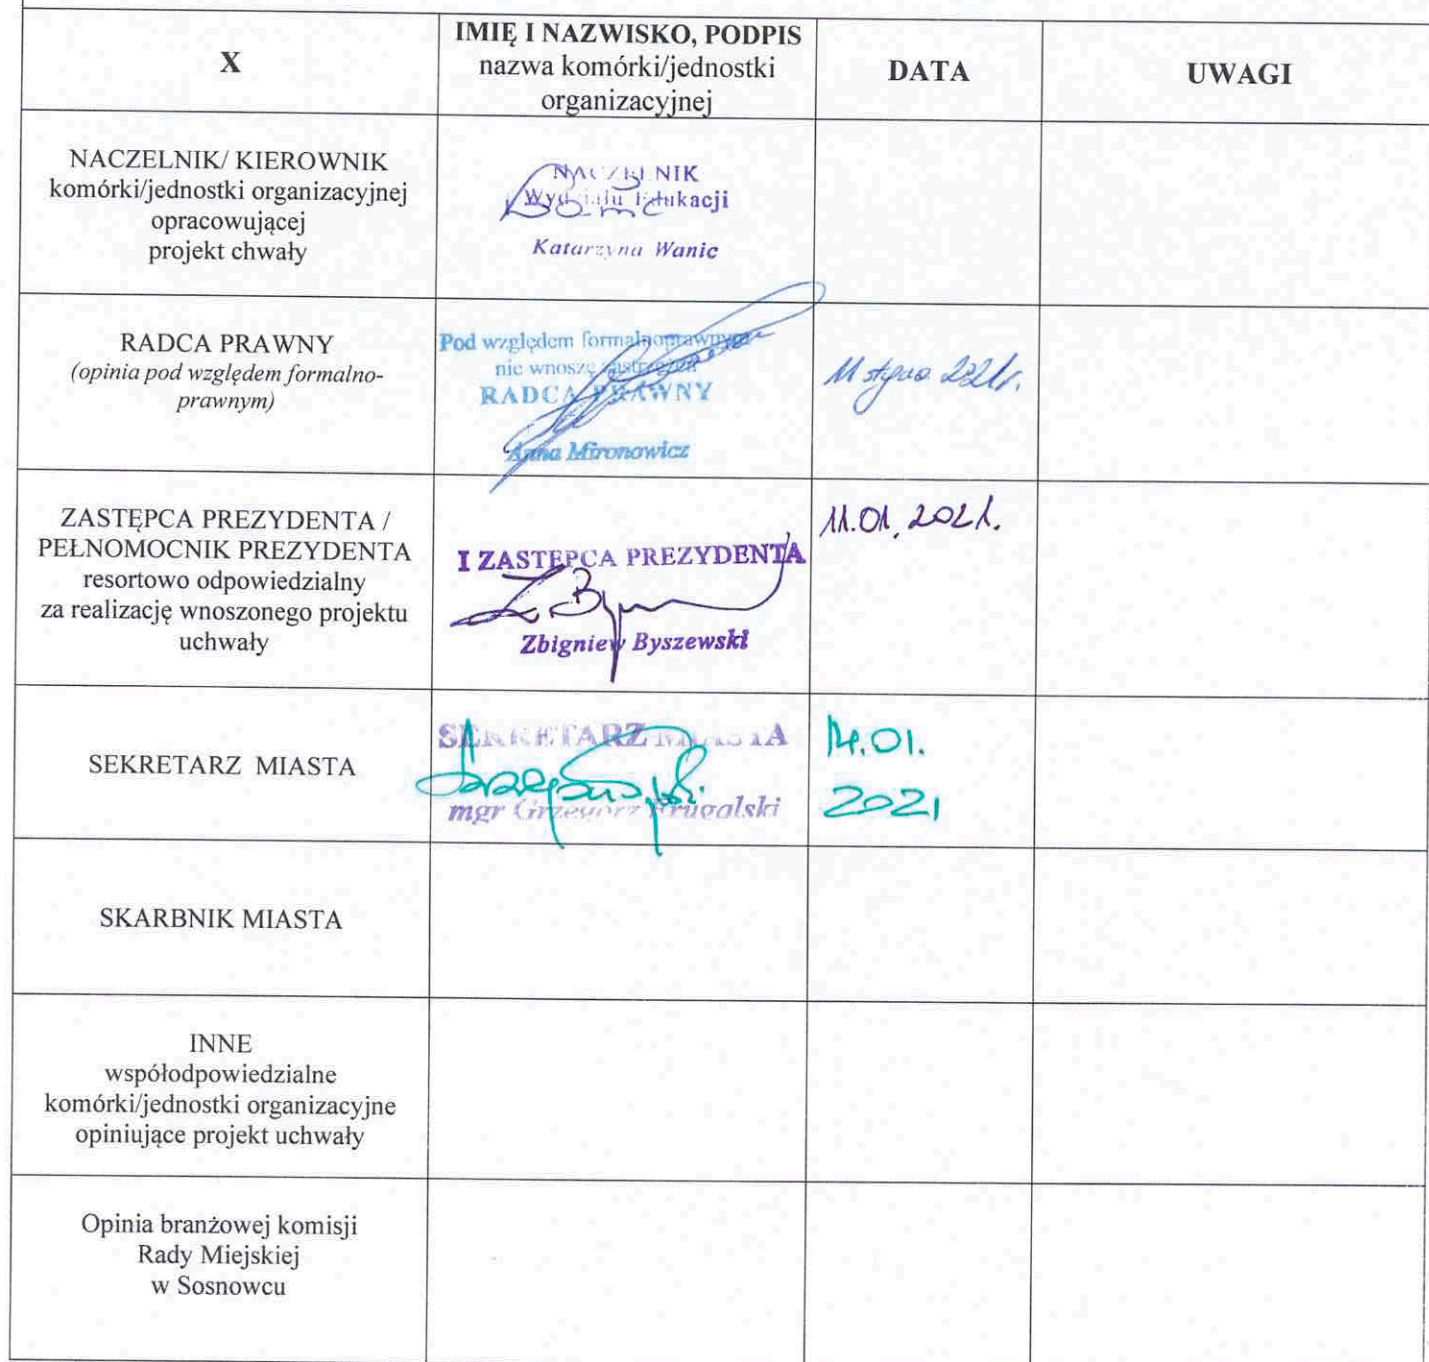 X
IMIĘ I NAZWISKO, PODPIS
nazwa komórki/jednostki
organizacyjnej
DATA
UWAGI
NACZELNIK/ KIEROWNIK
komórki/jednostki organizacyjnej
opracowującej
projekt chwały
NACZELNIK
Wydziału Edukacji
Katarzyna Wanic
RADCA PRAWNY
(opinia pod względem formalno-
prawnym)
Pod względem formalnoprawnym
nie wnoszę zastrzeżeń
RADCA PRAWNY
Anna Mironowicz
11 stycznia 2021r.
ZASTĘPCA PREZYDENTA /
PEŁNOMOCNIK PREZYDENTA
resortowo odpowiedzialny
za realizację wnoszonego projektu
uchwały
I ZASTĘPCA PREZYDENTA
Zbigniew Byszewski
11.01.2021.
SEKRETARZ MIASTA
SEKRETARZ MIASTA
mgr Grzegorz
14.01.
2021
SKARBNIK MIASTA
INNE
współodpowiedzialne
komórki/jednostki organizacyjne
opiniujące projekt uchwały
Opinia branżowej komisji
Rady Miejskiej
w Sosnowcu